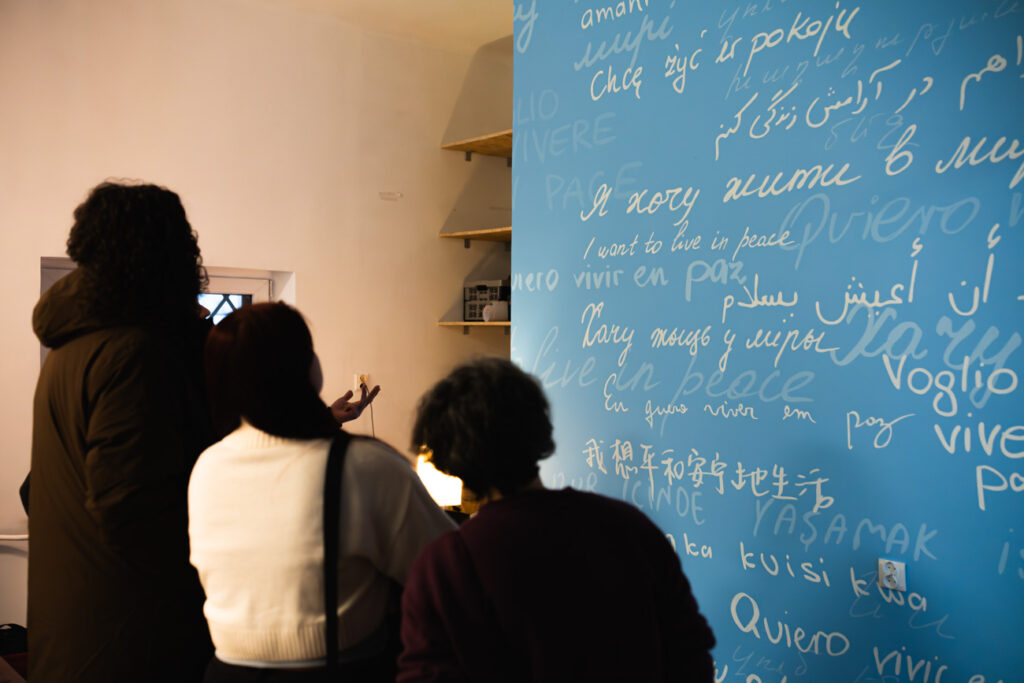 amani
мирі
Chcę żyć w pokoju
VIVERE
در آرامش زندگی کنم
PACE
Я хочу жити в ми
Quiero
I want to live in peace
uiero vivir en paz
أن أعيش بسلام
Хачу жыць у міры
Хачу
live in peace
Voglio
En quero vivir em paz
vivere
我想平和安宁地生活
pa
İÇİNDE
YAŞAMAK
ka kuisi kwa
Quiero
vivi